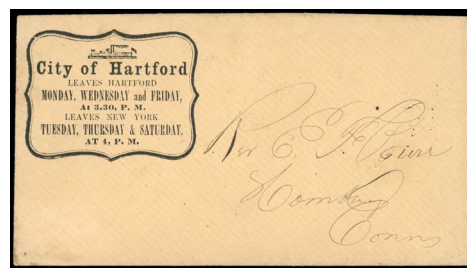 City of Hartford
LEAVES HARTFORD
MONDAY, WEDNESDAY and FRIDAY,
At 3.30, P. M.
LEAVES NEW YORK
TUESDAY, THURSDAY & SATURDAY,
AT 4, P. M.
Rev E. F.
Conn